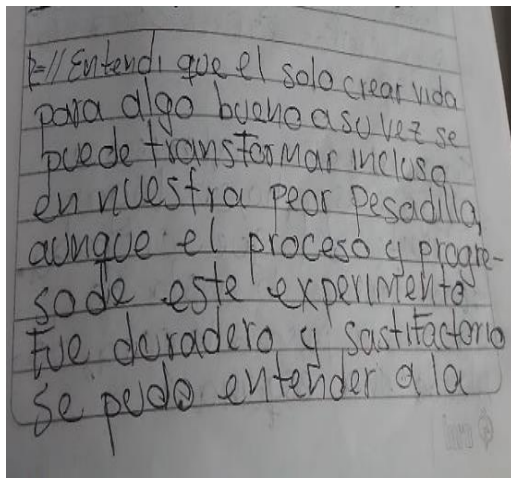 R=// Entendi que el solo crear vida
para algo bueno a su vez se
puede transformar incluso
en nuestra peor pesadilla,
aunque el proceso y progre-
so de este experimento
fue duradero y sastifactorio
se pudo entender a la